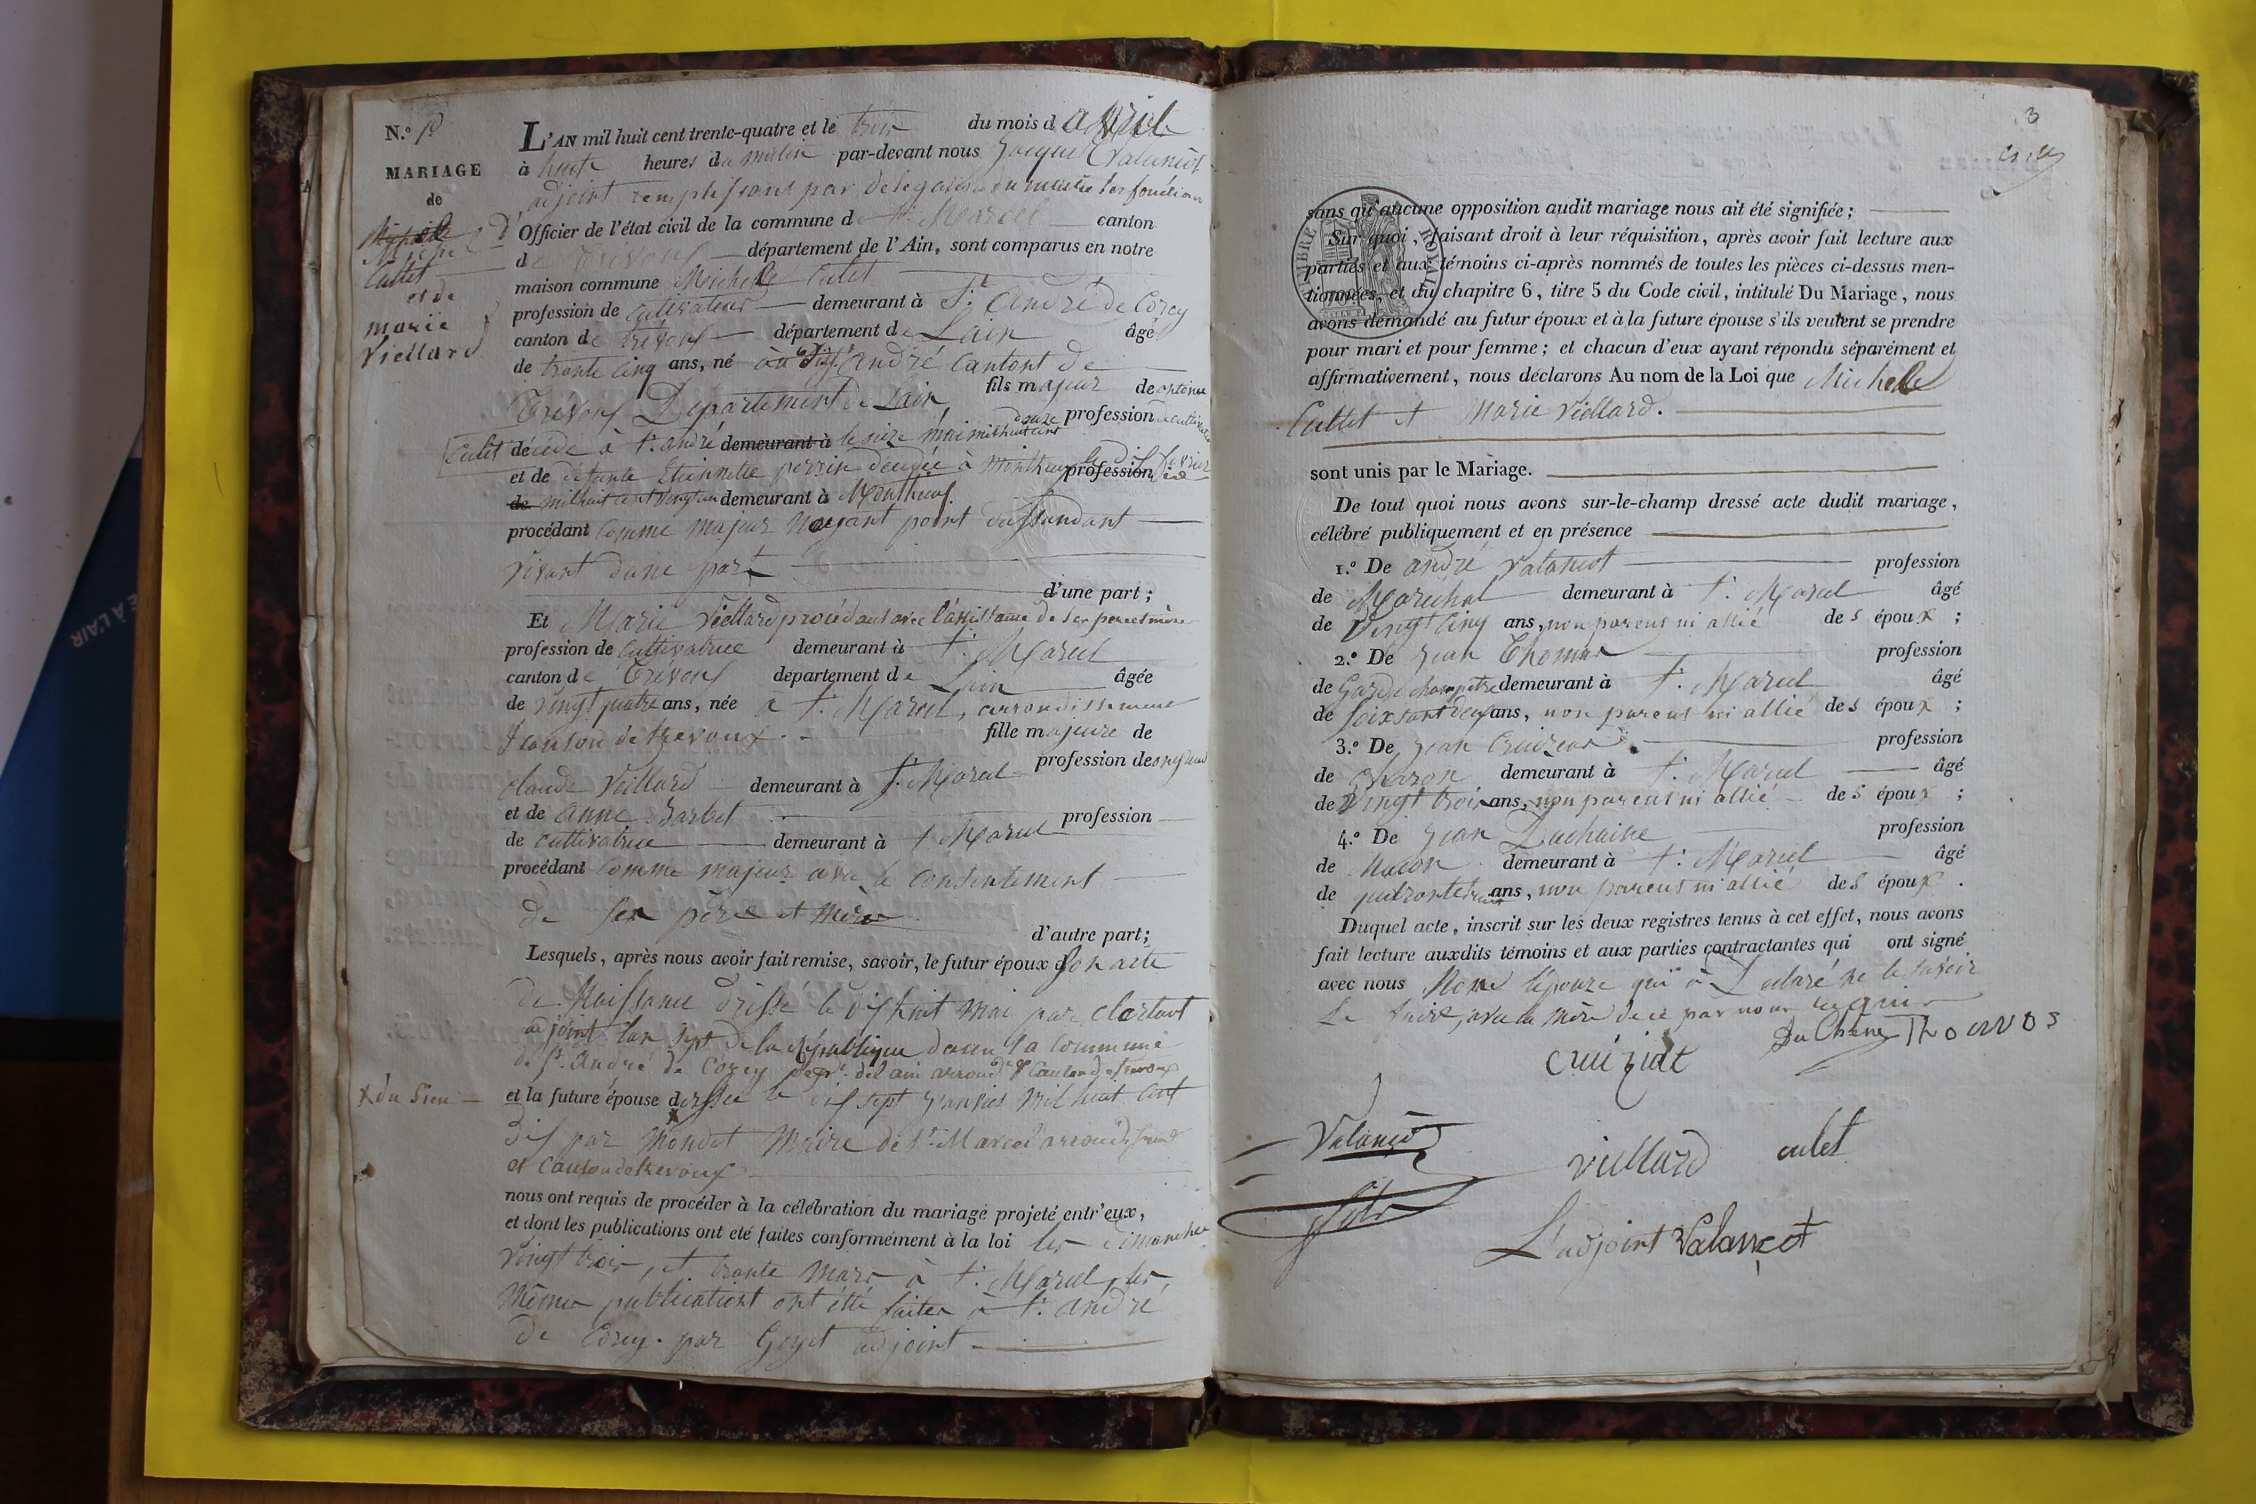 N.º
MARIAGE
de
Cullet
et de
marie
Viellard
L'AN mil huit cent trente-quatre et le trois du mois d avril
à huit heures du matin par-devant nous Jacques Valançot
adjoint remplissant par délégation du maire les fonctions
d'Officier de l'état civil de la commune de St. Marcel canton
de Trévoux département de l'Ain, sont comparus en notre
maison commune Michelle Culet
profession de Cultivateur demeurant à St. André de Corcy
canton de trévoux département de Lain âgé
de trante cinq ans, né à St. andré Cantont de
Trévoux Département de Lain fils majeur de antoine
Culet décédé à St. andré demeurant à le seize mai mil huit cent douze profession de cultivateur
et de défunte Etiennette perrin décédée à Montheux le dix février profession
de mil huit cent vingt un demeurant à Montheux
procédant comme majeur n'ayant point d'assendant
vivant d'une part
d'une part ;
Et Marie Viellard procédant avec l'assistance de ses père et mère
profession de Cultivatrice demeurant à St. Marcel
canton de Trévoux département de Lain âgée
de vingt quatre ans, née à St. Marcel, arrondissement
& canton de trevoux. fille majeure de
claude Viellard demeurant à St. Marcel profession de
et de anne Barbet profession
de cultivatrice demeurant à St Marcel
procédant comme majeur avec le consentement
de ses père et mère
d'autre part;
Lesquels, après nous avoir fait remise, savoir, le futur époux de son acte
de Naissance dressé le dix huit mai par
adjoint lan sept de la république dans la commune
de St. André de Corcy dépt. de l'ain arrond. & canton de trevoux
x du sien
et la future épouse dressée le dix sept janvier mil huit cent
dix par Mondet Maire de St. Marcel arrondissement
et canton de trevoux
nous ont requis de procéder à la célébration du mariage projeté entr'eux,
et dont les publications ont été faites conformément à la loi les dimanches
vingt trois, et trante mars à St. Marcel, les
mêmes publications ont été faites à St. andré
de Corcy. par Goyet adjoint
3
TIMBRE ROYAL
sans qu'aucune opposition audit mariage nous ait été signifiée ;
Sur quoi, faisant droit à leur réquisition, après avoir fait lecture aux
parties et aux témoins ci-après nommés de toutes les pièces ci-dessus men-
tionnées, et du chapitre 6, titre 5 du Code civil, intitulé Du Mariage, nous
avons demandé au futur époux et à la future épouse s'ils veulent se prendre
pour mari et pour femme ; et chacun d'eux ayant répondu séparément et
affirmativement, nous déclarons Au nom de la Loi que Michelle
Cullet et Marie Viellard.
sont unis par le Mariage.
De tout quoi nous avons sur-le-champ dressé acte dudit mariage,
célébré publiquement et en présence
1.º De andré Valancot profession
de Maréchal demeurant à St. Marcel âgé
de Vingt cinq ans, non parent ni allié des époux ;
2.º De Jean Thomas profession
de Garde champêtre demeurant à St. Marcel âgé
de soixsant deux ans, non parent ni allié des époux ;
3.º De Jean Cruiziat profession
de charon demeurant à St. Marcel âgé
de Vingt trois ans, non parent ni allié des époux ;
4.º De Jean Duchaine profession
de Macon demeurant à St. Marcel âgé
de ans, non parent ni allié des époux.
Duquel acte, inscrit sur les deux registres tenus à cet effet, nous avons
fait lecture auxdits témoins et aux parties contractantes qui ont signé
avec nous Non l'épouze qui a Déclaré ne le savoir
Le faire, avec la mère de ce par nous requis
Du Chêne Thomas
cruiziat
Valançot
Viellard culet
L'adjoint Valançot